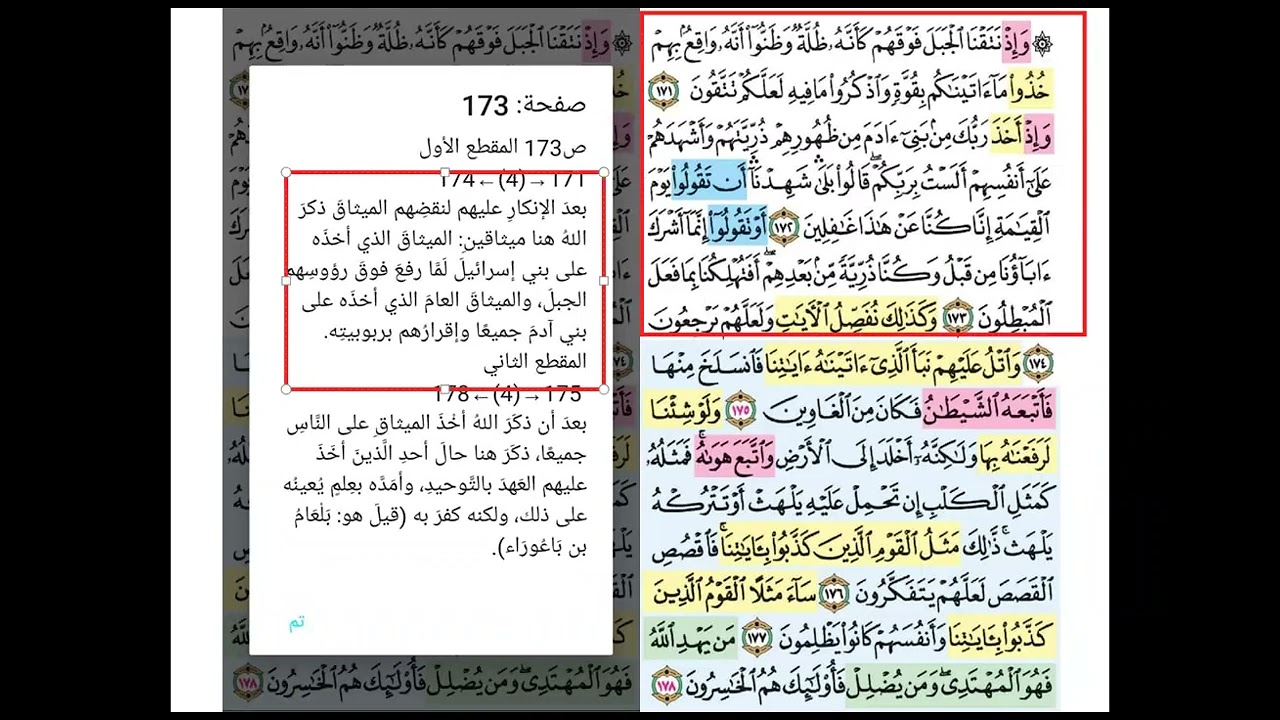 ۞ وَإِذْ نَتَقْنَا ٱلْجَبَلَ فَوْقَهُمْ كَأَنَّهُۥ ظُلَّةٌ وَظَنُّوٓا۟ أَنَّهُۥ وَاقِعٌۢ بِهِمْ
خُذُوا۟ مَآ ءَاتَيْنَٰكُم بِقُوَّةٍ وَٱذْكُرُوا۟ مَا فِيهِ لَعَلَّكُمْ تَتَّقُونَ ١٧١
وَإِذْ أَخَذَ رَبُّكَ مِنۢ بَنِىٓ ءَادَمَ مِن ظُهُورِهِمْ ذُرِّيَّتَهُمْ وَأَشْهَدَهُمْ
عَلَىٰٓ أَنفُسِهِمْ أَلَسْتُ بِرَبِّكُمْ ۖ قَالُوا۟ بَلَىٰ ۛ شَهِدْنَآ ۛ أَن تَقُولُوا۟ يَوْمَ
ٱلْقِيَٰمَةِ إِنَّا كُنَّا عَنْ هَٰذَا غَٰفِلِينَ ١٧٢ أَوْ تَقُولُوٓا۟ إِنَّمَآ أَشْرَكَ
ءَابَآؤُنَا مِن قَبْلُ وَكُنَّا ذُرِّيَّةً مِّنۢ بَعْدِهِمْ ۖ أَفَتُهْلِكُنَا بِمَا فَعَلَ
ٱلْمُبْطِلُونَ ١٧٣ وَكَذَٰلِكَ نُفَصِّلُ ٱلْءَايَٰتِ وَلَعَلَّهُمْ يَرْجِعُونَ
١٧٤ وَٱتْلُ عَلَيْهِمْ نَبَأَ ٱلَّذِىٓ ءَاتَيْنَٰهُ ءَايَٰتِنَا فَٱنسَلَخَ مِنْهَا
فَأَتْبَعَهُ ٱلشَّيْطَٰنُ فَكَانَ مِنَ ٱلْغَاوِينَ ١٧٥ وَلَوْ شِئْنَا
لَرَفَعْنَٰهُ بِهَا وَلَٰكِنَّهُۥٓ أَخْلَدَ إِلَى ٱلْأَرْضِ وَٱتَّبَعَ هَوَىٰهُ ۚ فَمَثَلُهُۥ
كَمَثَلِ ٱلْكَلْبِ إِن تَحْمِلْ عَلَيْهِ يَلْهَثْ أَوْ تَتْرُكْهُ
يَلْهَث ۚ ذَّٰلِكَ مَثَلُ ٱلْقَوْمِ ٱلَّذِينَ كَذَّبُوا۟ بِـَٔايَٰتِنَا ۚ فَٱقْصُصِ
ٱلْقَصَصَ لَعَلَّهُمْ يَتَفَكَّرُونَ ١٧٦ سَآءَ مَثَلًا ٱلْقَوْمُ ٱلَّذِينَ
كَذَّبُوا۟ بِـَٔايَٰتِنَا وَأَنفُسَهُمْ كَانُوا۟ يَظْلِمُونَ ١٧٧ مَن يَهْدِ ٱللَّهُ
فَهُوَ ٱلْمُهْتَدِى ۖ وَمَن يُضْلِلْ فَأُو۟لَٰٓئِكَ هُمُ ٱلْخَٰسِرُونَ ١٧٨
۞ وَإِذْ نَتَقْنَا ٱلْجَبَلَ فَوْقَهُمْ كَأَنَّهُۥ ظُلَّةٌ وَظَنُّوٓا۟ أَنَّهُۥ وَاقِعٌۢ بِهِمْ
صفحة: 173
ص173 المقطع الأول
171→(4)←174
بعدَ الإنكارِ عليهم لنقضِهم الميثاقَ ذكرَ
اللهُ هنا ميثاقينِ: الميثاقَ الذي أخذَه
على بني إسرائيلَ لَمَّا رفعَ فوقَ رؤوسِهم
الجبلَ، والميثاقَ العامَ الذي أخذَه على
بني آدمَ جميعًا وإقرارُهم بربوبيتِه.
المقطع الثاني
175→(4)←178
بعدَ أن ذكَرَ اللهُ أخْذَ الميثاقِ على النَّاسِ
جميعًا، ذكَرَ هنا حالَ أحدِ الَّذينَ أخَذَ
عليهم العَهدَ بالتَّوحيدِ، وأمَدَّه بعِلمٍ يُعينُه
على ذلك، ولكنه كفرَ به (قيلَ هو: بَلْعَامُ
بن بَاعُورَاء).
تم
فَهُوَ ٱلْمُهْتَدِى ۖ وَمَن يُضْلِلْ فَأُو۟لَٰٓئِكَ هُمُ ٱلْخَٰسِرُونَ ١٧٨